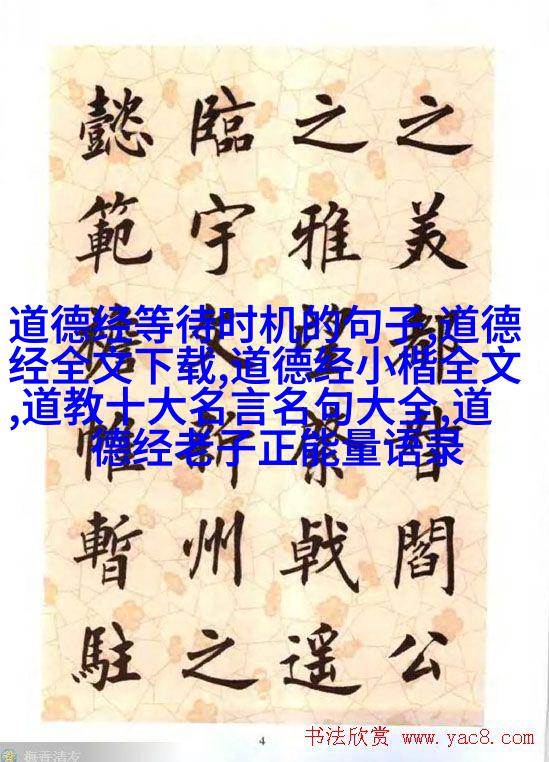 之美都督閻公
之雅望棨戟遥
臨宇文新州之
懿範襜帷暫駐
道德经等待时机的句子,道德
经全文下载,道德经小楷全文
,道教十大名言名句大全,道
德经老子正能量语录
4
书法欣赏 www.yac8.com
梅香清友